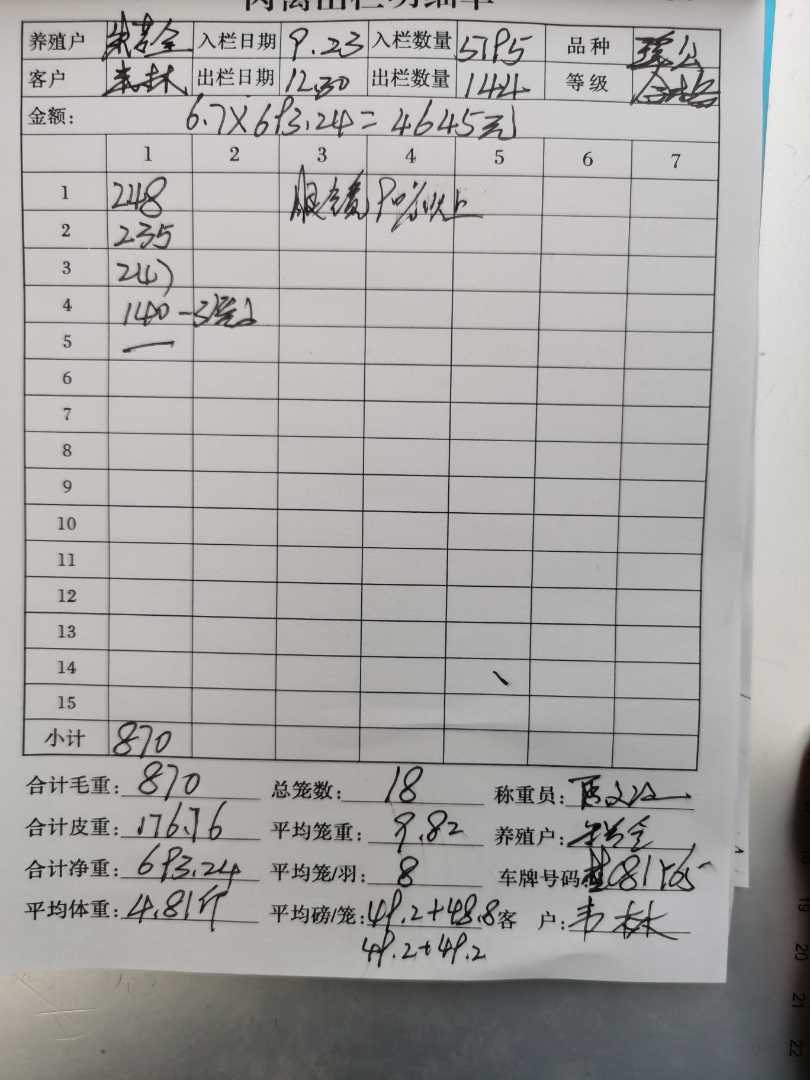 肉禽出栏明细单
养殖户 朱若全 入栏日期 9.23 入栏数量 5795 品种
客户 韦林 出栏日期 12.30 出栏数量 144 等级
金额: 6.7×693.24=4645元
1 2 3 4 5 6 7
1 248 90%以上
2 235
3 247
4 140-3笼
5 —
6
7
8
9
10
11
12
13
14
15
小计 870
合计毛重: 870 总笼数: 18 称重员:
合计皮重: 176.76 平均笼重: 9.82 养殖户:
合计净重: 693.24 平均笼/羽: 8 车牌号码:
平均体重: 4.81斤 平均磅/笼: 49.2+48.8 客 户: 韦林
49.2+49.2
19
20
21
22